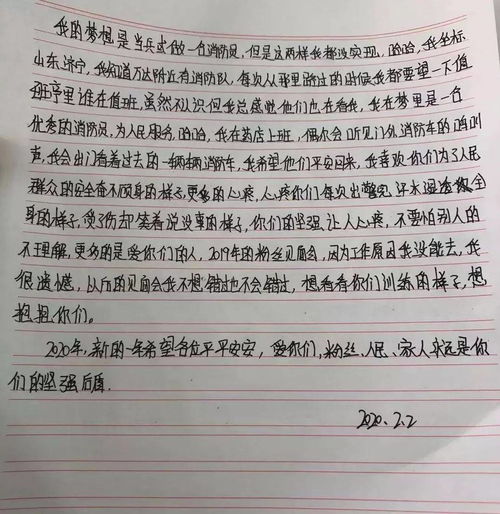 我的梦想是当兵或做一名消防员，但是这两样我都没实现，哈哈，我坐标
山东济宁，我知道万达附近有消防队，每次从那里路过的时候我都要望一下值
班亭里谁在值班，虽然不认识但我总感觉他们也在看我，我在梦里是一名
优秀的消防员，为人民服务，哈哈，我在药店上班，偶尔会听见门外消防车的鸣叫
声，我会出门看着过去的一辆辆消防车，我希望他们平安回来，我喜欢你们为了人民
群众的安全奋不顾身的样子，更多的心疼，心疼你们每次出警完汗水湿透做全
身的样子，受伤却笑着说没事的样子，你们的坚强让人心疼，不要怕别人的
不理解，更多的是爱你们的人，2019年的粉丝见面会，因为工作原因我没能去，我
很遗憾，以后的见面会我不想错过也不会错过，想看看你们训练的样子，想
抱抱你们。
2020年，新的一年希望各位平平安安，爱你们，粉丝、人民、家人永远是你
们的坚强后盾.
2020.2.2